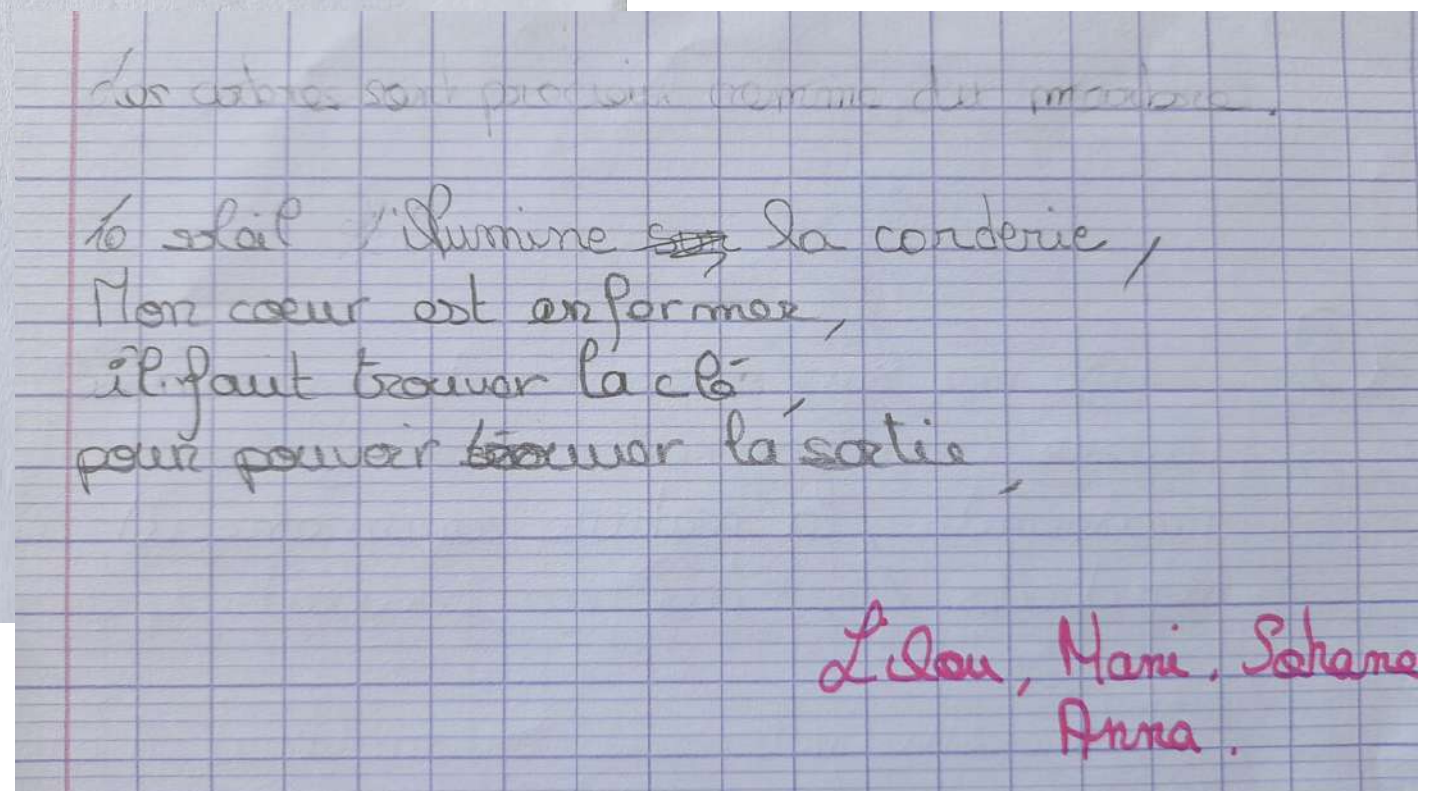 Les arbres sont précieux comme du marbre.
Le soleil illumine la corderie,
Mon coeur est enfermer,
il faut trouver la clé,
pour pouvoir trouver la sortie,
Lilou, Mani, Sohane
Anna.